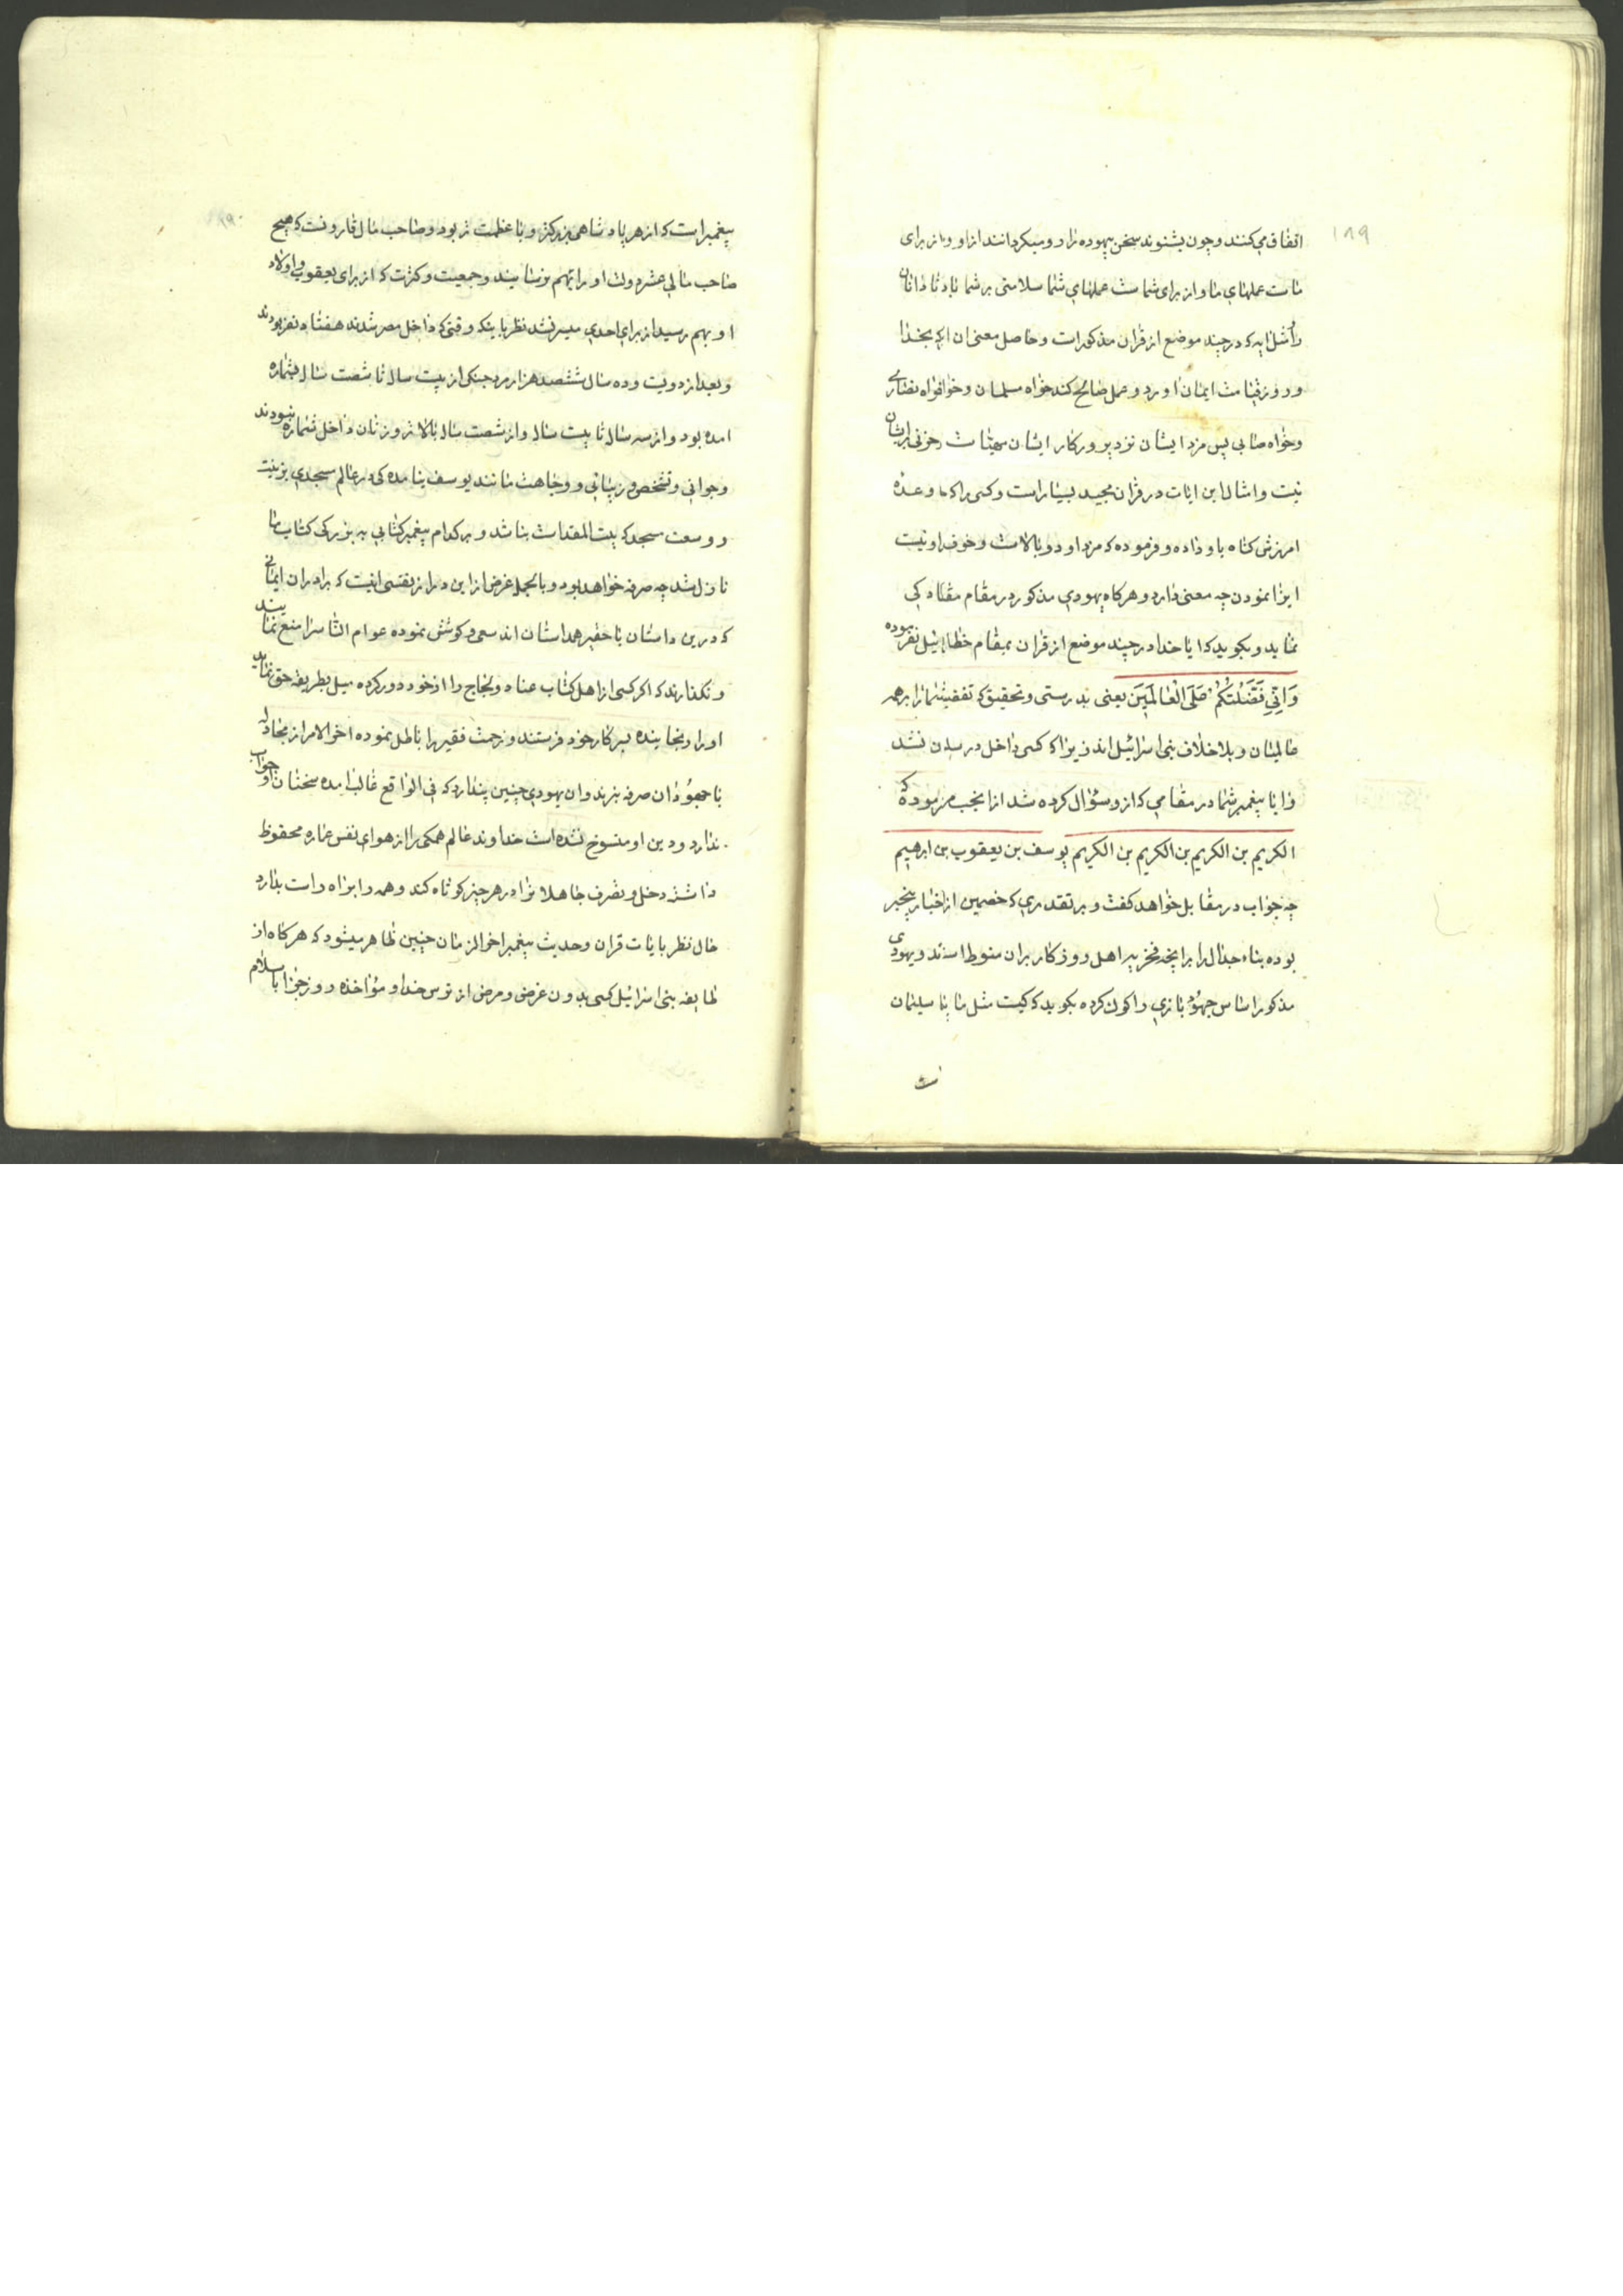 ۱۸۹
اتفاق می کنند و چون بشنوند سخن بیهوده را رو میکردانند از او و از برای
ماست عملهای ما و از برای شماست عملهای شما سلامتی بر شما باد تا دانان
و مثل ایه که در چند موضع از قران مذکور است و حاصل معنی ان اکه بخدا
و روز قیامت ایمان اورد و عمل صالح کند خواه مسلمان و خواه نصاری
و خواه صابی پس مزد ایشان نزد پروردکار ایشان است و حزنی بر ایشان
نیست و امثال این ایات در قران مجید بسیار است و کسی را که وعده
امرزش کناه باو داده و فرموده که مزد او دو بالاست و خوف او نیست
ایزا نمودن چه معنی دارد و هرکاه یهودی مذکور در مقام مقلاد کی
نماید و بکوید که ایا خدا در چند موضع از قران بمقام خطا اسرائیل نفرموده
وَاَنّیِ فَضَّلْتُكُمْ عَلَی الْعٰالَمیَنَ یعنی بدرستی و تحقیق که تفضیل شما را بر همه
عالمیان و بلاخلاف بنی اسرائیل اند زیرا که کسی داخل در بدن نشد
و ایا پیغمبر شما در مقامی که از و سؤال کرده شد از انجب فرموده که
الکریم بن الکریم بن الکریم بن الکریم یوسف بن یعقوب بن ابرهیم
چه جواب در مقابل خواهد کفت و بر تقدیری که خصمین از اخبار بیخبر
بوده بناء جدال را بر انچه فخریه اهل روزکار بران منوط است و یهودی
مذکور اساس جهود بازی را کون کرده بکوید که کیست مثل ما یا سلیمان
پیغمبر است که از هر پادشاهی بزرکتر و با عظمت تر بود و صاحب مال قارونست که هیچ
صاحب مالی عشر دولت او را بهم نرسانید و جمعیت و کثرت که از برای یعقوب و اولاد
او بهم رسید از برای احدی میسر نشد نظر باینکه وقتی که داخل مصر شدند هفتاد نفر بودند
و بعد از دویست و ده سال ششصد هزار مرد جنکی از بیست سال تا شصت سال بشماره
امده بود و از سه سال تا بیست سال و از شصت سال بالاتر و زنان داخل شماره نبودند
و جوانی و تشخص و زیبائی و وجاهت مانند یوسف نیامده که در عالم مسجدی بزینت
و وسعت مسجد که بیت المقدس باشد و بر کدام پیغمبر کتابی به بزرکی کتاب ما
نازل شد چه صرفه خواهد بود و بالجمله غرض از این دراز نفسی انیست که برادران ایمانی
که درین داستان با حقیر همداستان اند سعی و کوشش نموده عوام الناس را منع نمایند
و نکذارند که اکر کسی از اهل کتاب عناد و لجاج را از خود دور کرده میل بطریقه حق نماید
او را رنجانیده بسر کار خود فرستند و زحمت فقیر را باطل نموده اخر الامر از مجادله
با جهودان صرفه نبرند و ان یهودی چنین پندارد که فی الواقع غالب امده سخنان او جواب
ندارد و دین او منسوخ نشده است خداوند عالم همکی را از هوای نفس اماره محفوظ
داشته دخل و تصرف جاهلا نرا در هر چیز کوتاه کند و همه را براه راست بدارد
حال نظر بایات قران و حدیث پیغمبر اخر الزمان چنین ظاهر میشود که هرکاه از
طایفه بنی اسرائیل کسی بدون غرض و مرض از ترس خدا و مؤاخذه روز جزا باسلام